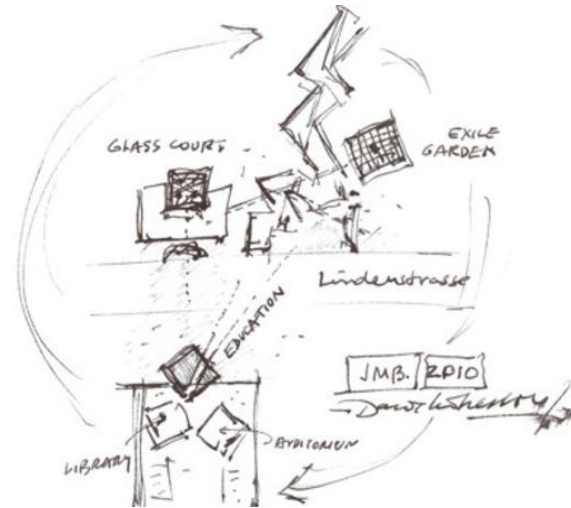 GLASS COURT
EXILE
GARDEN
Lindenstrasse
EDUCATION
JMB.
2010
LIBRARY
AUDITORIUM